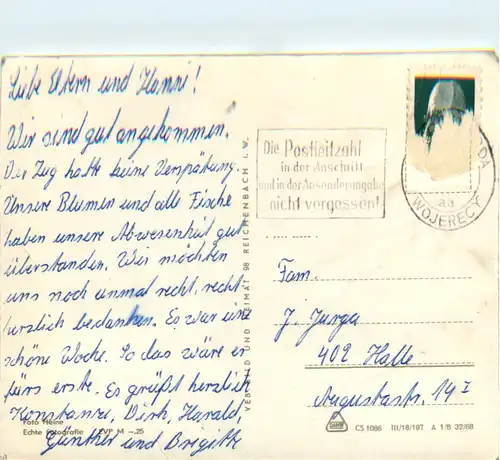 Liebe Eltern und Hanni!
Wir sind gut angekommen.
Der Zug hatte keine Verspätung.
Unsere Blumen und alle Fische
haben unsere Abwesenheit gut
überstanden. Wir möchten
uns noch einmal recht, recht
herzlich bedanken. Es war eine
schöne Woche. So das wäre er
fürs erste. Es grüßt herzlich
Konstanze, Dirk, Harald,
Günther und Brigitte
Foto Heine
Echte Fotografie EVP M -.25
VEB BILD UND HEIMAT 98 REICHENBACH I. V.
Die Postleitzahl
in der Anschrift
und in der Absenderangabe
nicht vergessen!
aa
WOJERECY
Fam.
J. Jurga
402 Halle
Augustastr. 19 I
CS 1086 III/18/197 A 1/B 32/68